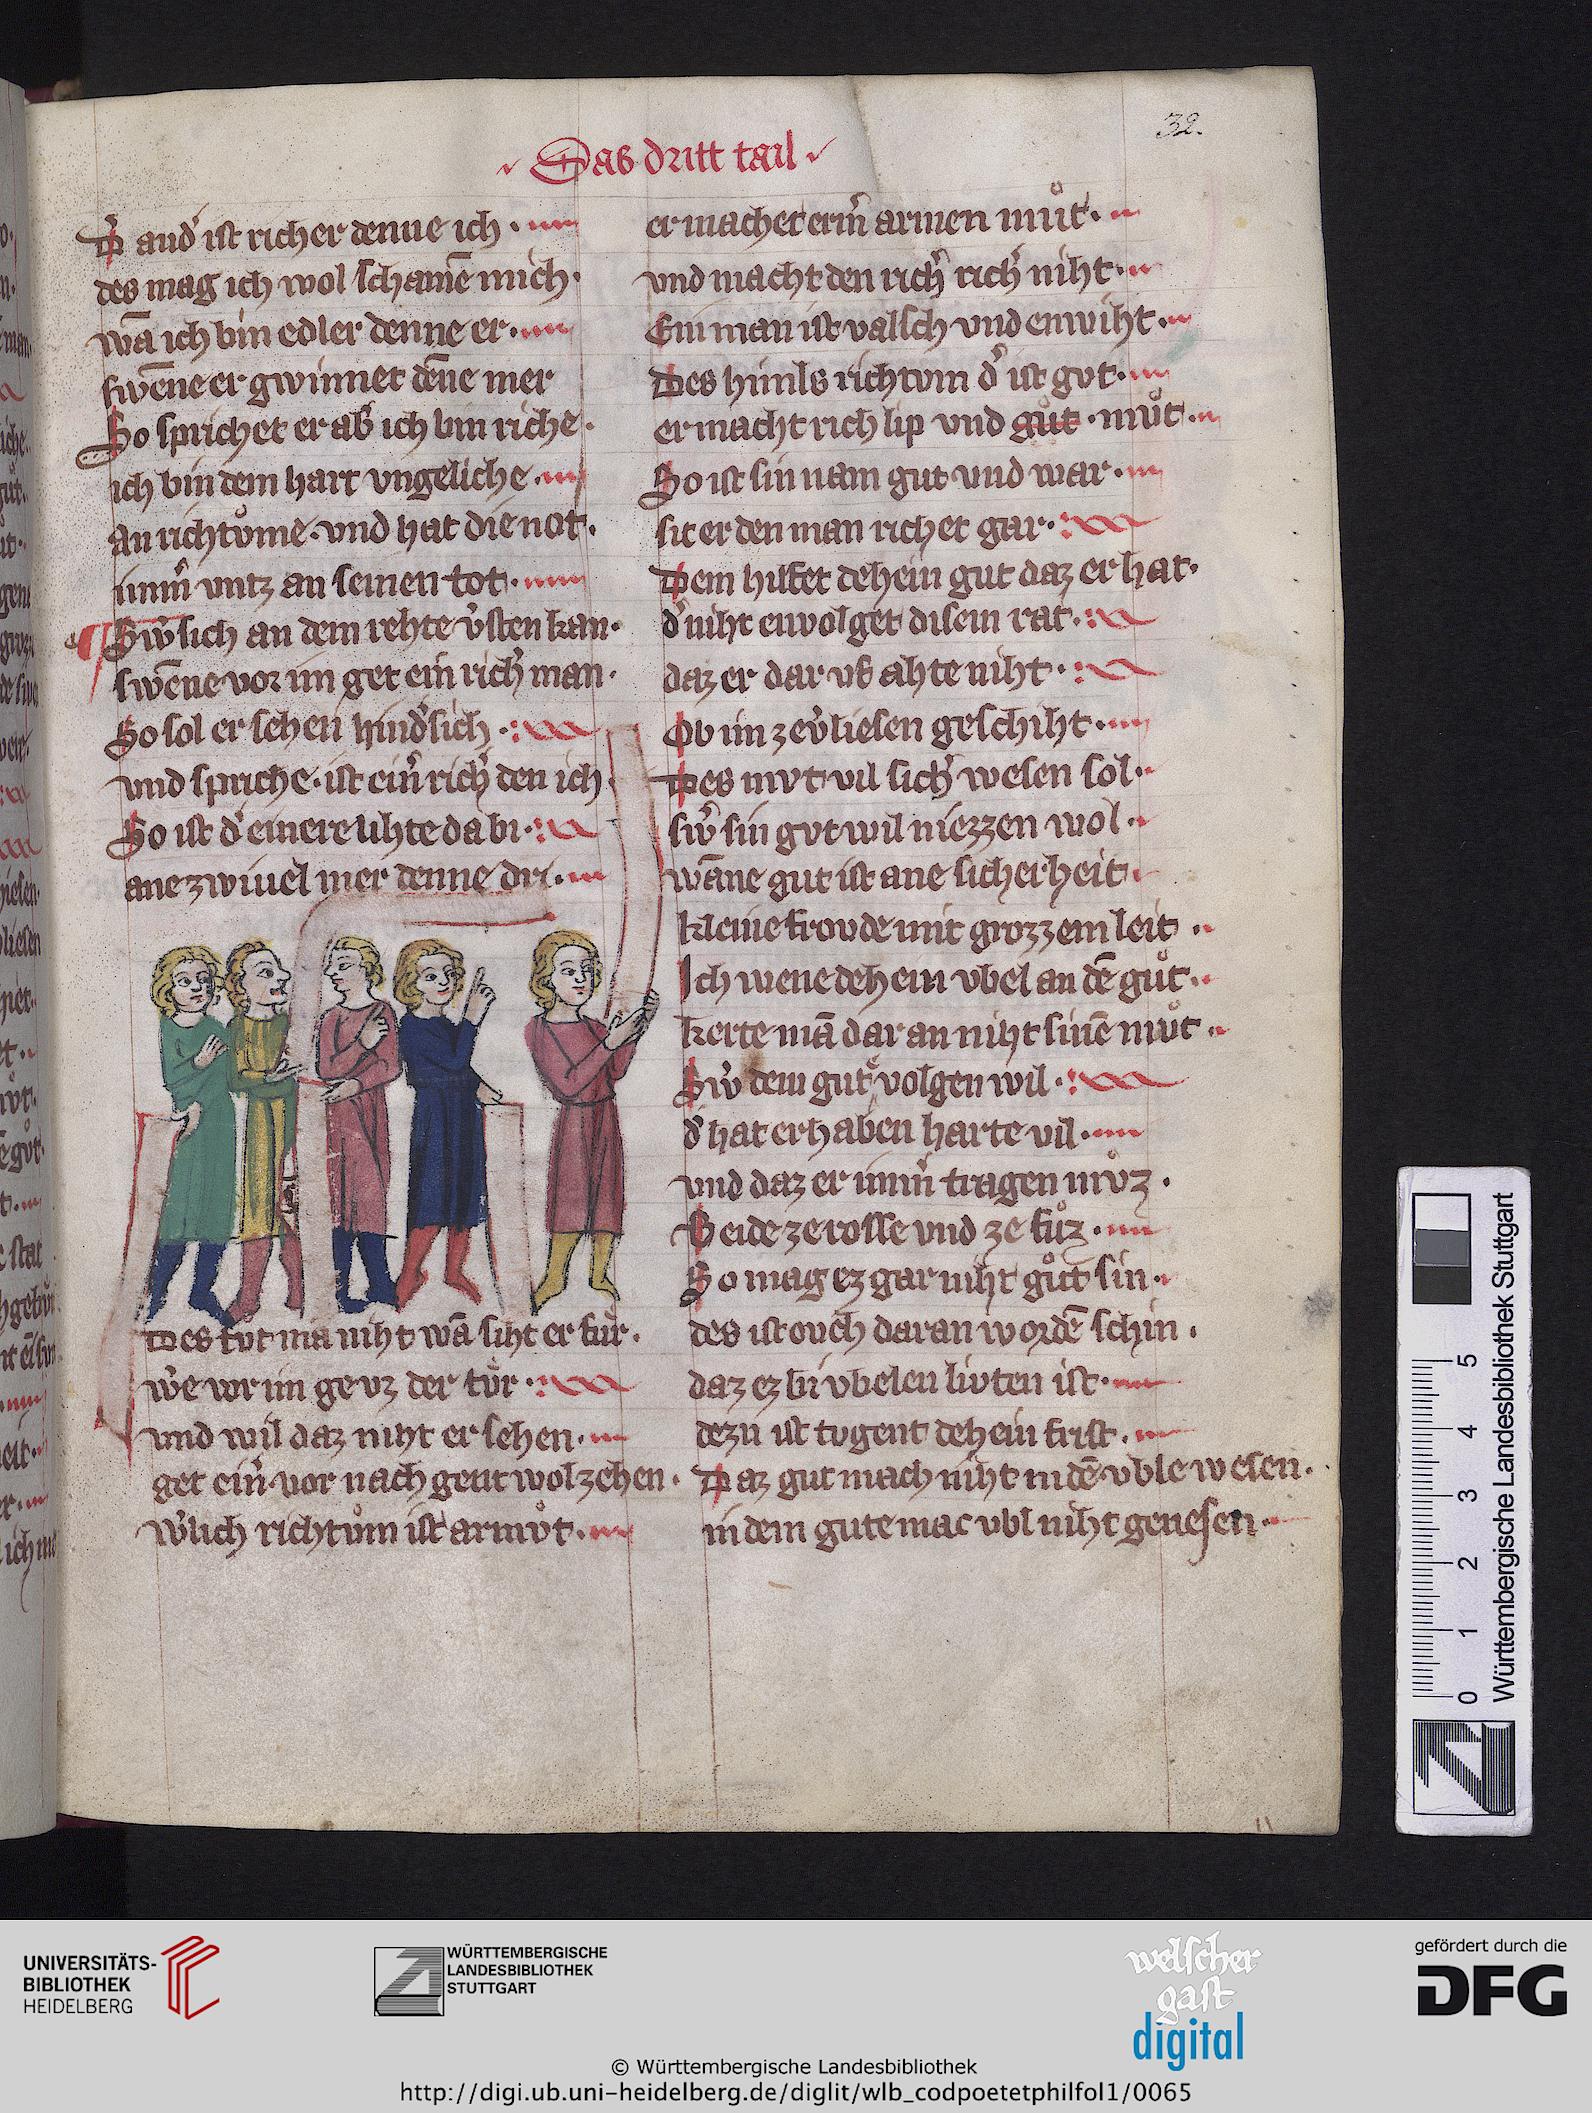 32.
Das dritt tail
D' and' ist richer denne ich.
des mag ich wol schamē mich.
wā ich bin edler denne er.
swēne er gwinnet dēne mer
So sprichet er ab' ich bin riche.
ich bin dem hart vngeliche.
An richtůme. vnd hat die not.
imm' vntz an seinen tot.
Sw' sich an dem rehte v'sten kan.
swēne vor im get ein rich' man.
So sol er sehen hind' sich.
vnd spriche. ist ein' rich' den ich
So ist d' einere lihte da bi.
ane zwiuel mer denne dri.
Des tvt mā niht wā siht er für.
w'e vor im ge vz der tür.
vnd wil daz niht er sehen.
get ein' vor nach gent wol zehen.
W'lich richtům ist armůt.
er machet erm' armen můt.
vnd macht den rich' rich' niht.
Ein man ist valsch vnd enwiht.
Des himls richtvm d' ist got.
er macht rich lip vnd gůt. můt.
So ist sin nam gut vnd war.
sit er den man richet gar.
Dem hilfet dehein gut daz er hat.
d' niht envolget disem rat.
daz er dar vf ahte niht.
Ob im ze v'liesen geschiht.
Des mvt vil sich' wesen sol.
sw' sin gvt wil niezzen wol.
wāne gut ist ane sicherheit.
kleine frovde mit grozzem leit
Ich wene dehein vbel an dē gůt.
kerte mā dar an niht sinē můt
Sw' dem gute volgen wil.
d' hat erhaben harte vil.
vnd daz er imm' tragen můz.
Beide ze rosse vnd ze fůz.
So mag ez gar niht gůt sin.
des ist ovch daran wordē schin.
daz ez bi vbelen livten ist.
dezn ist tvgent dehein frist.
Daz gut mach niht in dē vble wesen.
in dem gute mac vbl niht genesen.
0 1 2 3 4 5
Württembergische Landesbibliothek Stuttgart
UNIVERSITÄTS-
BIBLIOTHEK
HEIDELBERG
WÜRTTEMBERGISCHE
LANDESBIBLIOTHEK
STUTTGART
welscher
gast
digital
gefördert durch die
DFG
© Württembergische Landesbibliothek
http://digi.ub.uni-heidelberg.de/diglit/wlb_codpoetetphilfol1/0065